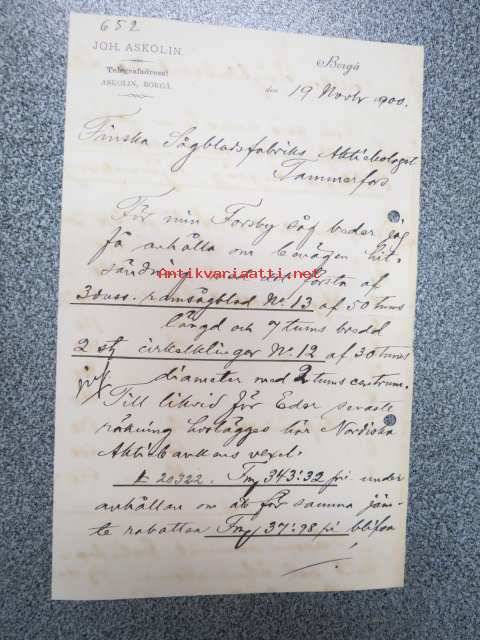 652
JOH. ASKOLIN.
Telegrafadress:
ASKOLIN, BORGÅ.
Borgå
den 19 Novbr 1900.
Finska Sågbladsfabriks Aktiebolaget
Tammerfors
För min Forsby såg beder jag
få anhålla om benägen hit-
sändning med det första af
Antikvariaatti.net
3 duss. ramsågblad No. 13 af 50 tums
längd och 7 tums bredd
2 st cirkelklingor No. 12 af 30 tums
diameter med 2 tums centrum.
Till likvid för Eder senaste
räkning bilägges här Nordiska
Aktiebankens vexel
20322. Fmf 343:32 pi under
anhållan om att få samma jäm-
te rabatten Fmf 37:98 pi